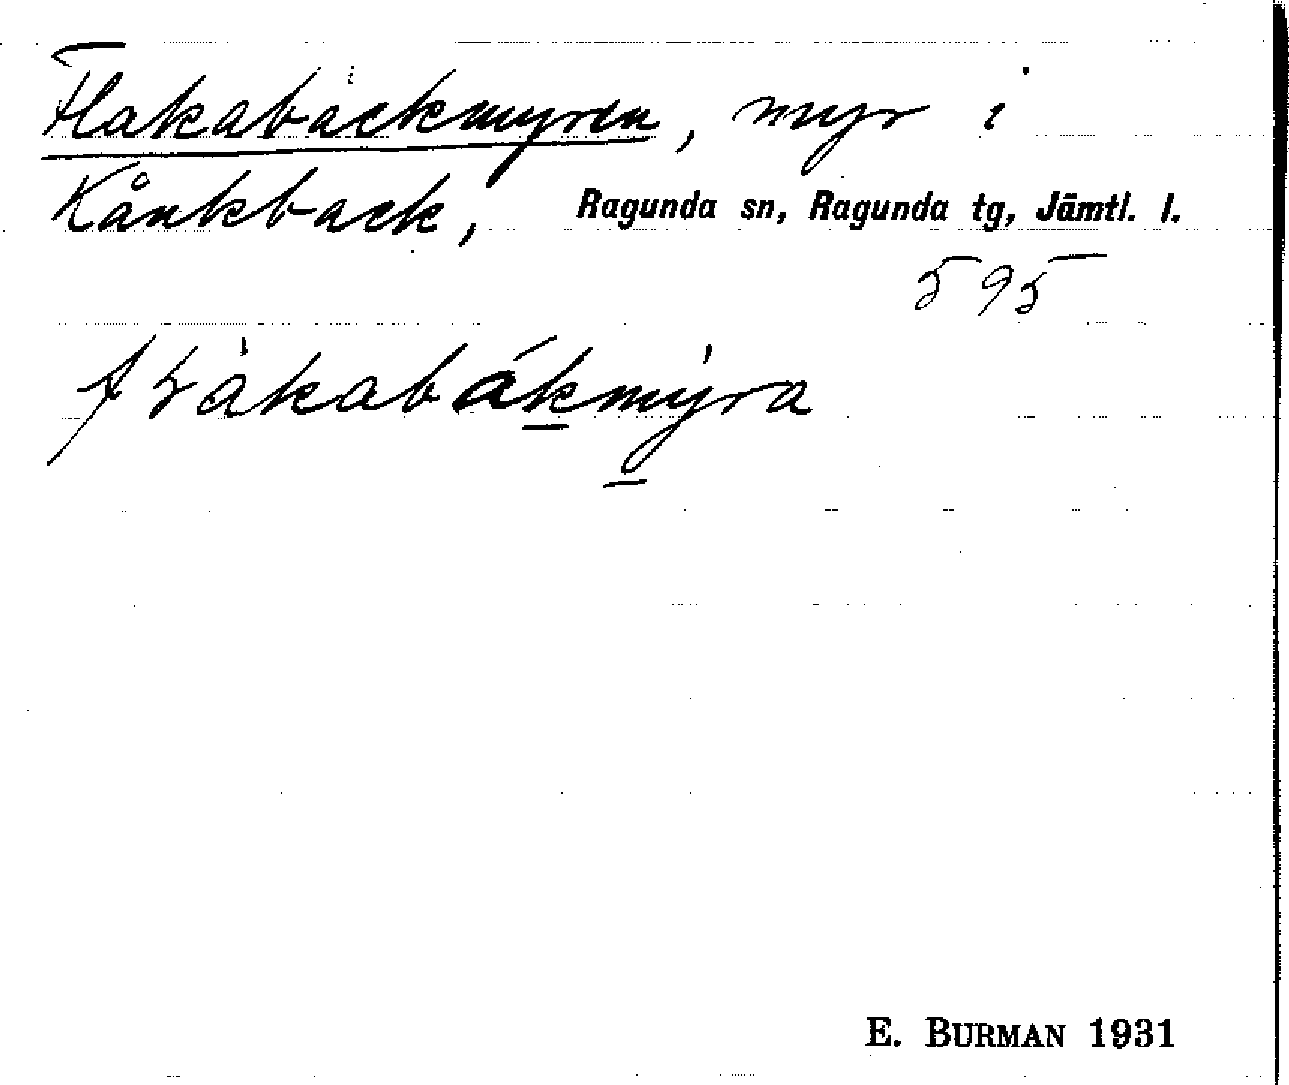 Flakabäckmyren, myr i
Kånkback, Ragunda sn, Ragunda tg, Jämtl. l.
595
E. BURMAN 1931